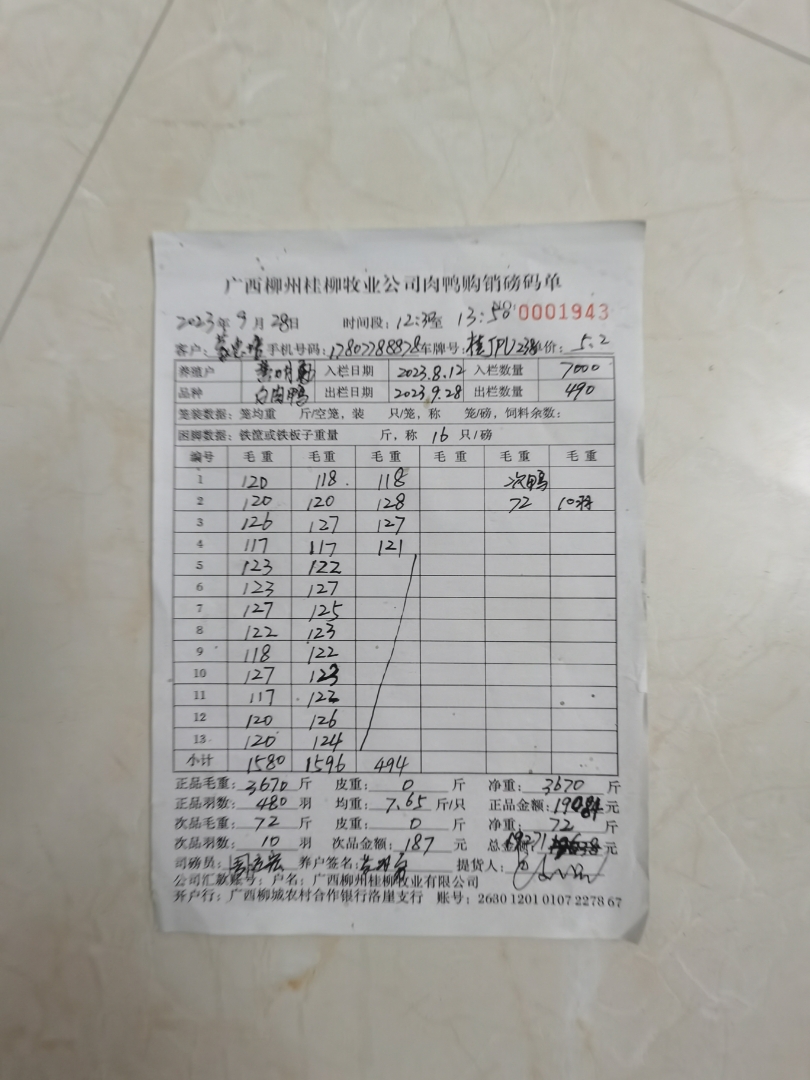 广西柳州桂柳牧业公司肉鸭购销磅码单
2023年 9月 28日 时间段: 12:37至 13:58 0001943
客户: 手机号码: 17807788878 车牌号: 桂JPU238 单价: 5.2
养殖户 黄 入栏日期 2023.8.12 入栏数量 7000
品种 白肉鸭 出栏日期 2023.9.28 出栏数量 490
笼装数据: 笼均重 斤/空笼, 装 只/笼, 称 笼/磅, 饲料余数:
困脚数据: 铁筐或铁板子重量 斤, 称 16 只/磅
编号 毛重 毛重 毛重 毛重 毛重 毛重
1 120 118 118 次鸭
2 120 120 128 72 10羽
3 126 127 127
4 117 117 121
5 123 122
6 123 127
7 127 125
8 122 123
9 118 122
10 127 123
11 117 122
12 120 126
13 120 124
小计 1580 1596 494
正品毛重: 3670 斤 皮重: 0 斤 净重: 3670 斤
正品羽数: 480 羽 均重: 7.65 斤/只 正品金额: 19084 元
次品毛重: 72 斤 皮重: 0 斤 净重: 72 斤
次品羽数: 10 羽 次品金额: 187 元 总金额: 19271 元
司磅员: 养户签名: 提货人:
公司汇款账号: 户名: 广西柳州桂柳牧业有限公司
开户行: 广西柳城农村合作银行洛崖支行 账号: 2630 1201 0107 2278 67